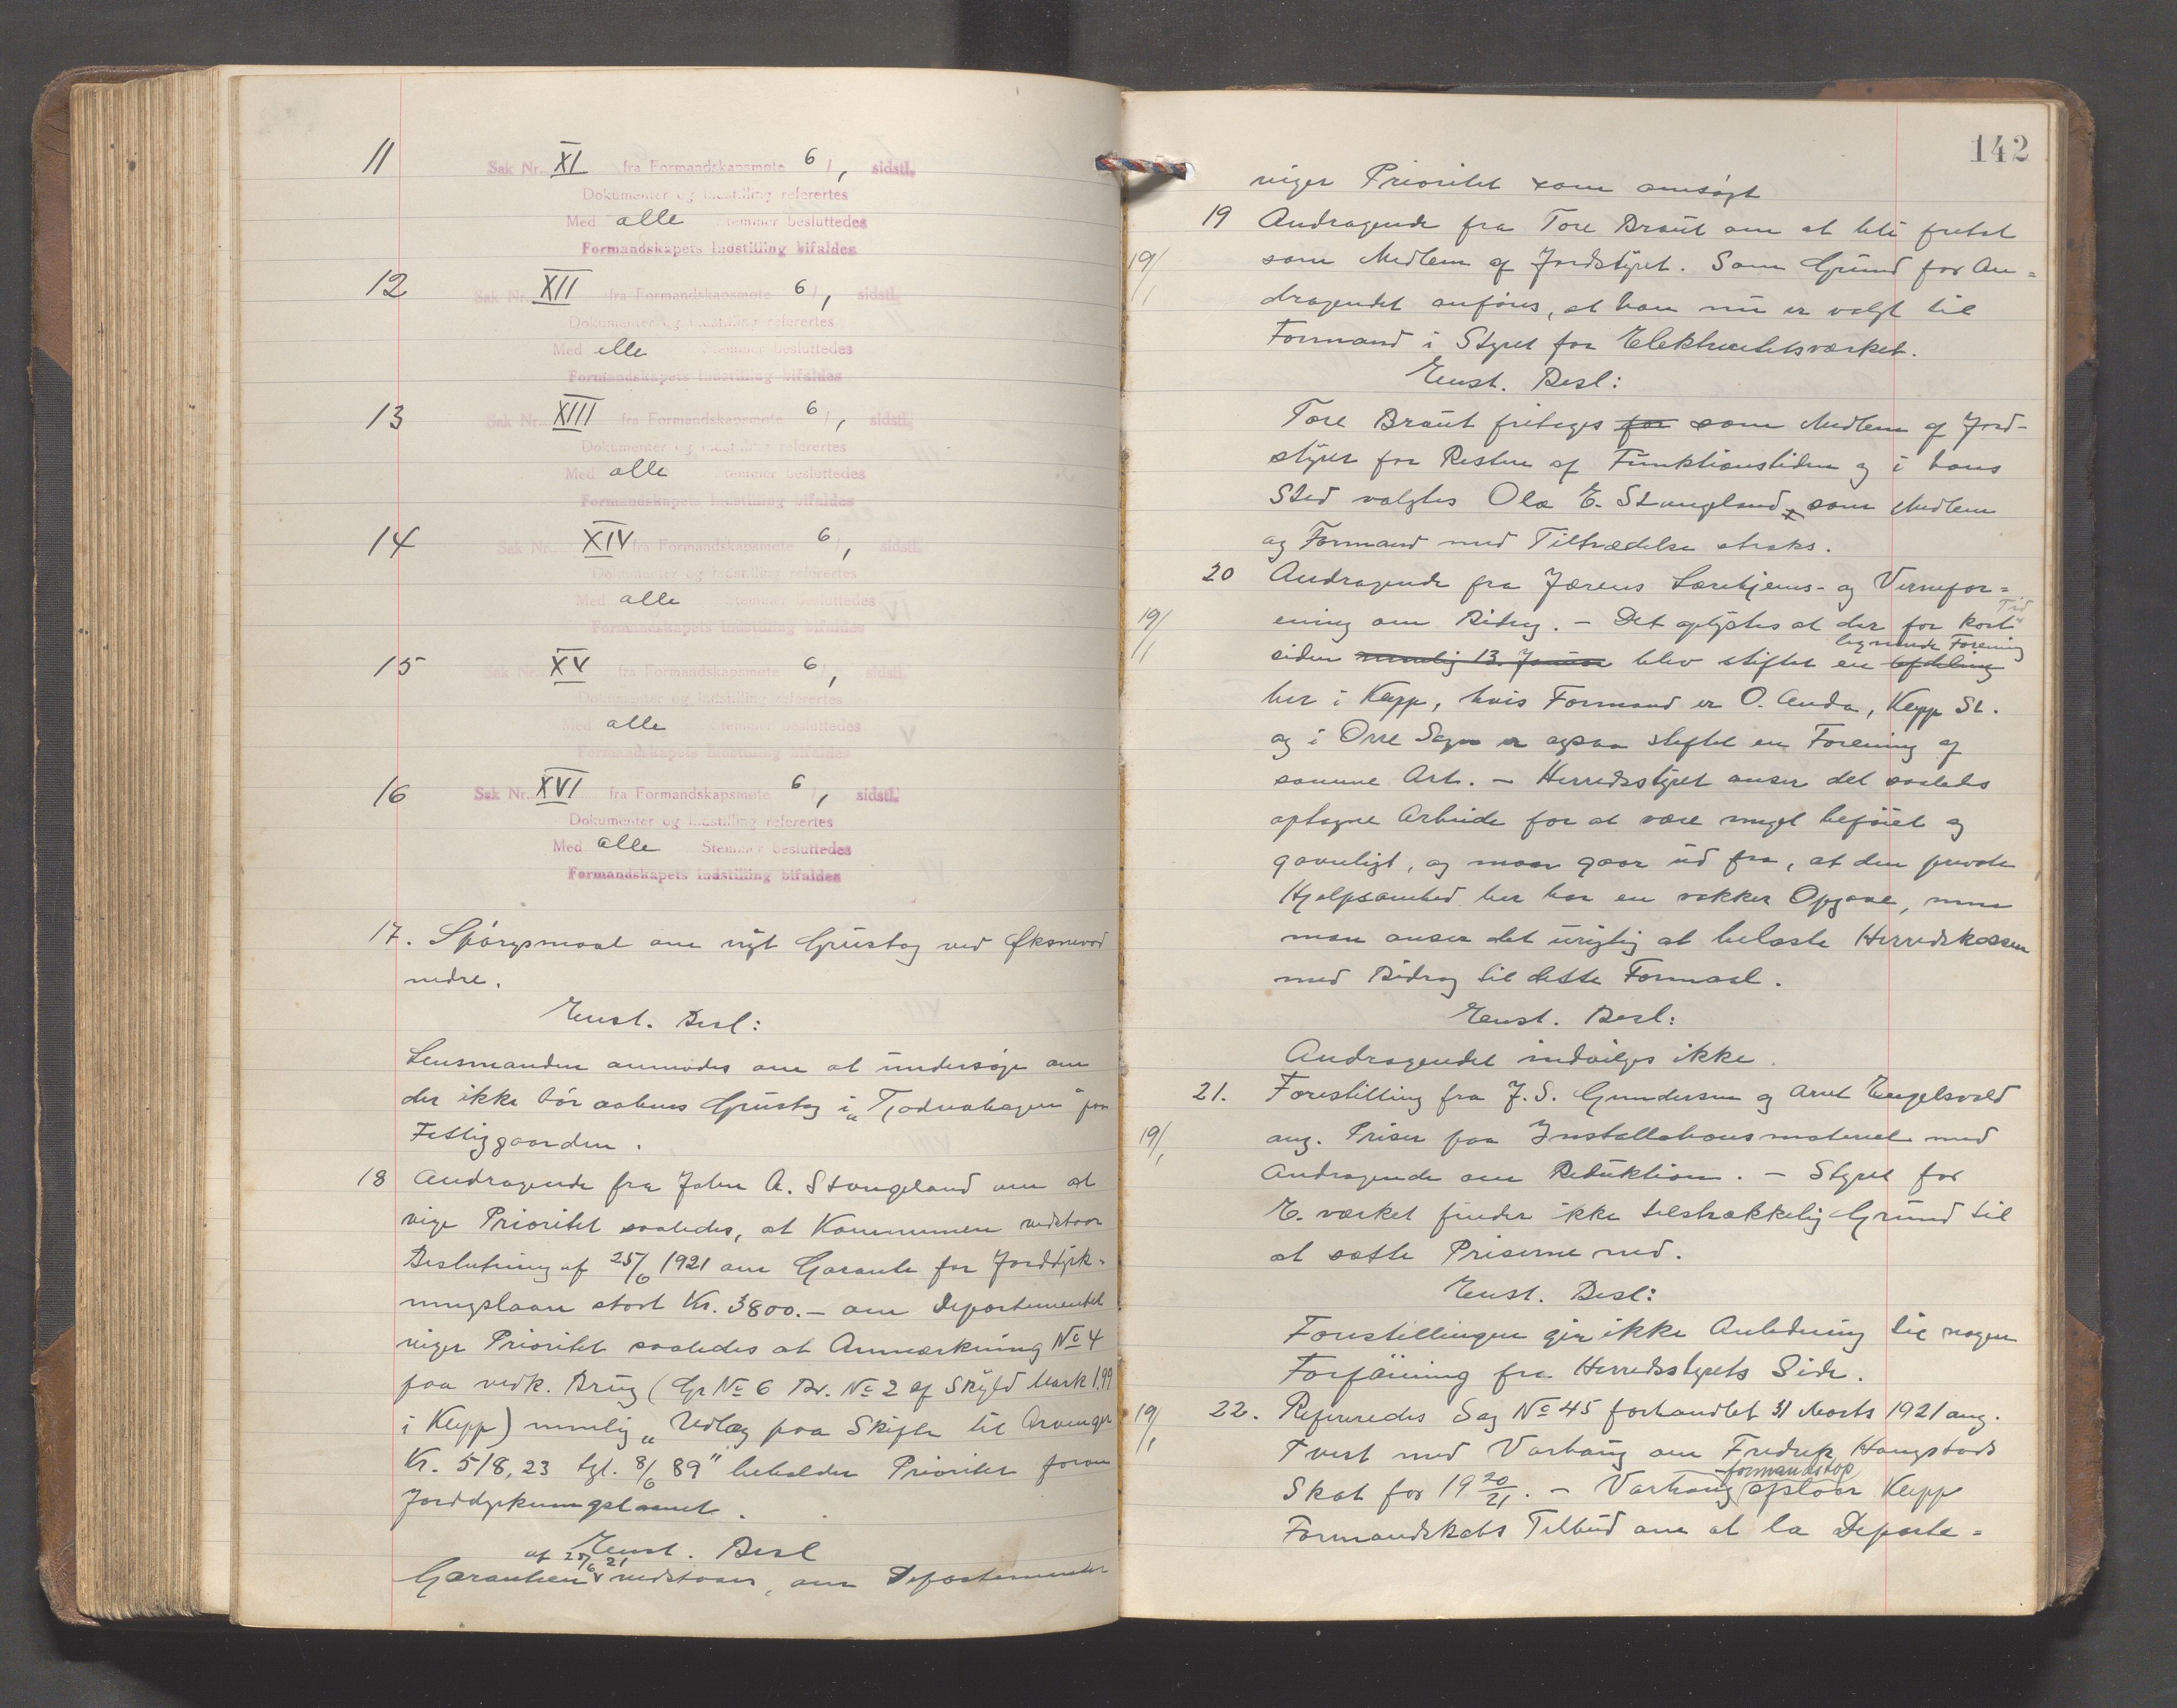 11 Sak Nr. XI fra Formandskapsmøte 6/1, sidstl.
Dokumenter og Indstilling referertes
Med alle Stemmer besluttedes
Formandskapets Indstilling bifaldes
12 Sak Nr. XII fra Formandskapsmøte 6/1, sidstl.
Dokumenter og Indstilling referertes
Med alle Stemmer besluttedes
Formandskapets Indstilling bifaldes
13 Sak Nr. XIII fra Formandskapsmøte 6/1, sidstl.
Dokumenter og Indstilling referertes
Med alle Stemmer besluttedes
Formandskapets Indstilling bifaldes
14 Sak Nr. XIV fra Formandskapsmøte 6/1, sidstl.
Dokumenter og Indstilling referertes
Med alle Stemmer besluttedes
Formandskapets Indstilling bifaldes
15 Sak Nr. XV fra Formandskapsmøte 6/1, sidstl.
Dokumenter og Indstilling referertes
Med alle Stemmer besluttedes
Formandskapets Indstilling bifaldes
16 Sak Nr. XVI fra Formandskapsmøte 6/1, sidstl.
Dokumenter og Indstilling referertes
Med alle Stemmer besluttedes
Formandskapets Indstilling bifaldes
17. Spørgsmaal om nyt Grustag ved Øksnevad
nedre.
Enst. Besl:
Lensmanden anmodes om at undersøge om
der ikke bør aabnes Grustag i "Tjødnahagen" paa
Fattiggaarden.
18 Andragende fra John A. Stangeland om at
vige Prioritet saaledes, at Kommunen vedstaar
Beslutning af 25/6 1921 om Garanti for Jorddyrk-
ningslaan stort Kr. 3800.- om Departementet
viger Prioritet saaledes at Anmærkning No 4
paa vedk. Brug (Gr No 6 Br. No 2 af Skyld Mark 1,99
i Klepp) nemlig "Udlæg paa Skifte til Arvinger
Kr. 518,23 tgl. 8/6 89" beholder Prioritet foran
Jorddyrkningslaanet.
Enst. Besl
Garantien af 25/6 21 vedstaaes, om Departementet
142
viger Prioritet som ansøgt
19 Andragende fra Tore Braut om at bli fritat
19/1 som Medlem af Jordstyret. Som Grund for An=
dragendet anføres, at han nu er valgt til
Formand i Styret for Elektricitetsværket.
Enst. Besl:
Tore Braut fritages for som Medlem af Jord-
styret for Resten af Funktionstiden og i hans
Sted valgtes Ola E. Stangeland som Medlem
og Formand med Tiltrædelse straks.
20 Andragende fra Jærens Lærehjems- og Vernefor=
19/1 ening om Bidrag. - Det oplystes at der for kort Tid
siden nemlig 13. Januar blev stiftet en afdeling lignende Forening
her i Klepp, hvis Formand er O. Anda, Klepp St.
og i Orre Sogn er ogsaa stiftet en Forening af
samme Art. - Herredsstyret anser det saaledes
optagne Arbeide for at være meget beføiet og
gavnligt, og man gaar ud fra, at den private
Hjelpsomhed her har en vakker Opgave, men
man anser det urigtig at belaste Herredskassen
med Bidrag til dette Formaal.
Enst. Besl:
Andragendet indvilges ikke.
21. Forestilling fra J. S. Gundersen og Arnt Engelsvold
19/1 ang. Priser paa Installationsmateriel med
Andragende om Reduktion. - Styret for
E. værket finder ikke tilstrækkelig Grund til
at sætte Priserne ned.
Enst. Besl:
Forestillingen gir ikke Anledning til nogen
Forføining fra Herredsstyrets Side.
19/1 22. Refereredes Sag No 45 forhandlet 31 Marts 1921 ang.
Tvist med Varhaug om Fredrik Haugstads
Skat for 1920/21. - Varhaug formandskap afslaar Klepp
Formandskabs Tilbud om at la Departe=